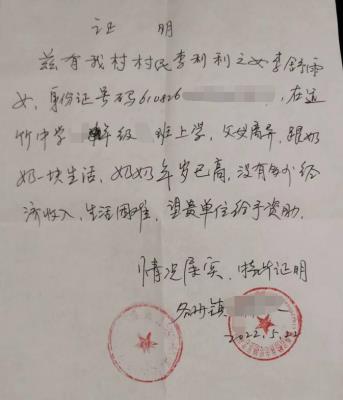 证 明
兹有我村村民李利利之女李舒雨
女,身份证号码610826 ,在
竹中学 年级 班上学,父母离异,跟奶
奶一块生活,奶奶年岁已高,没有另外经
济收入,生活困难,望贵单位给予资助。
情况属实,特此证明
名州镇
2022.5.22